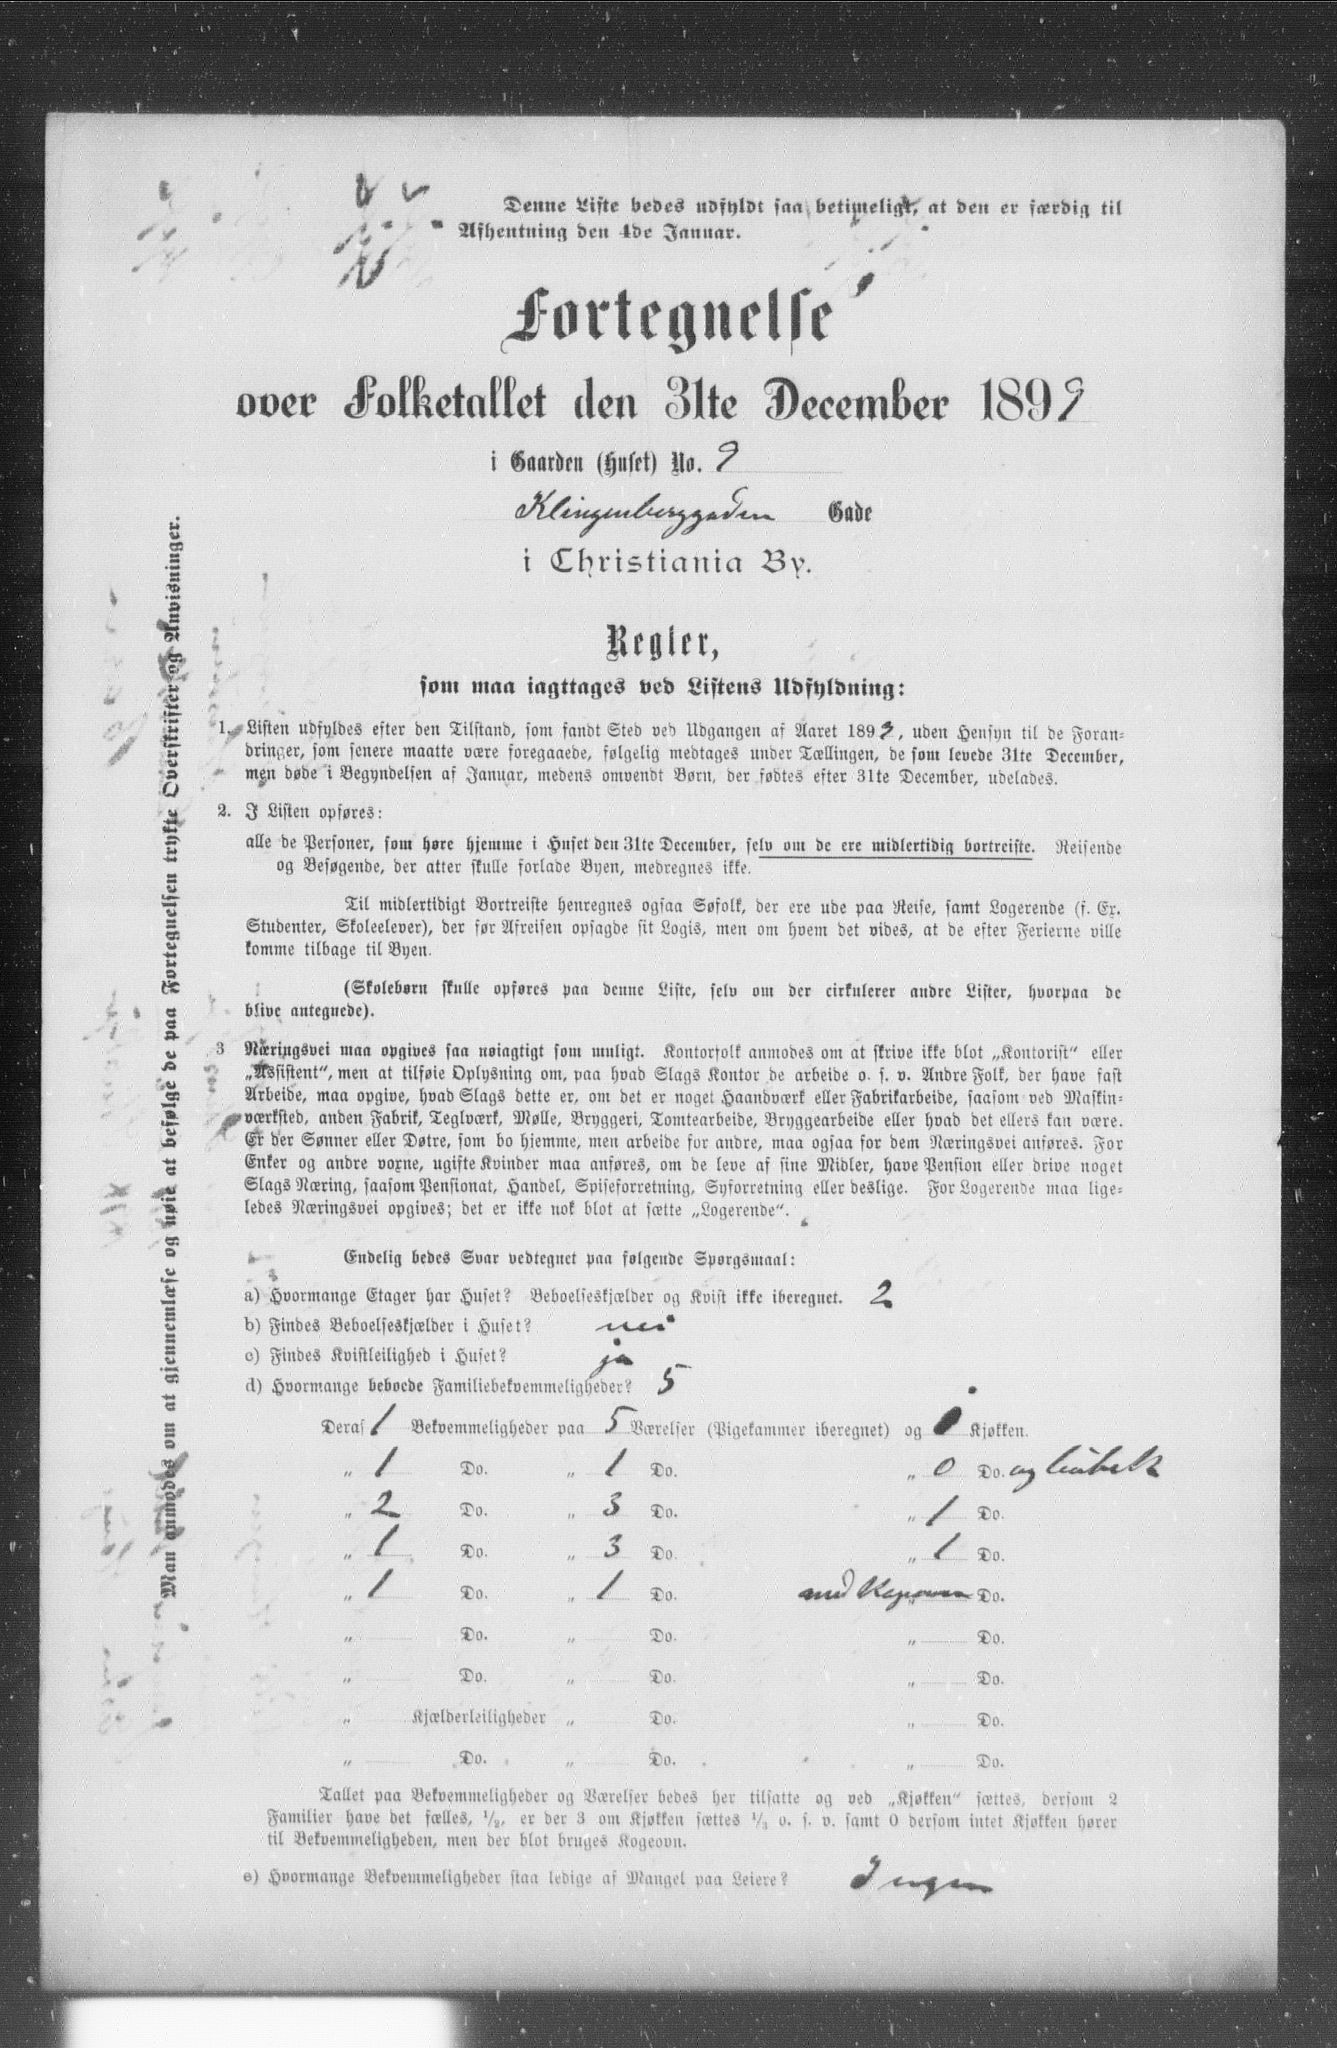 Denne Liste bedes udfyldt saa betimeligt, at den er færdig til
Afhentning den 4de Januar.
Fortegnelse
over Folketallet den 31te December 1899
i Gaarden (Huset) No. 9
Klingenberggaden Gade
i Christiania By.
Regler,
som maa iagttages ved Listens Udfyldning:
1. Listen udfyldes efter den Tilstand, som fandt Sted ved Udgangen af Aaret 1899, uden Hensyn til de Foran-
dringer, som senere maatte være foregaaede, følgelig medtages under Tællingen, de som levede 31te December,
men døde i Begyndelsen af Januar, medens omvendt Børn, der fødtes efter 31te December, udelades.
2. I Listen opføres:
alle de Personer, som høre hjemme i Huset den 31te December, selv om de ere midlertidig bortreiste. Reisende
og Besøgende, der atter skulle forlade Byen, medregnes ikke.
Til midlertidigt Bortreiste henregnes ogsaa Søfolk, der ere ude paa Reise, samt Logerende (f. Ex.
Studenter, Skoleelever), der før Afreisen opsagde sit Logis, men om hvem det vides, at de efter Ferierne ville
komme tilbage til Byen.
(Skolebørn skulle opføres paa denne Liste, selv om der cirkulerer andre Lister, hvorpaa de
blive antegnede).
3 Næringsvei maa opgives saa nøiagtigt som muligt. Kontorfolk anmodes om at skrive ikke blot „Kontorist“ eller
„Assistent“, men at tilføie Oplysning om, paa hvad Slags Kontor de arbeide o. s. v. Andre Folk, der have fast
Arbeide, maa opgive, hvad Slags dette er, om det er noget Haandværk eller Fabrikarbeide, saasom ved Maskin-
værksted, anden Fabrik, Teglværk, Mølle, Bryggeri, Tomtearbeide, Bryggearbeide eller hvad det ellers kan være.
Er der Sønner eller Døtre, som bo hjemme, men arbeide for andre, maa ogsaa for dem Næringsvei anføres. For
Enker og andre voxne, ugifte Kvinder maa anføres, om de leve af sine Midler, have Pension eller drive noget
Slags Næring, saasom Pensionat, Handel, Spiseforretning, Syforretning eller deslige. For Logerende maa lige-
ledes Næringsvei opgives; det er ikke nok blot at sætte „Logerende“.
Endelig bedes Svar vedtegnet paa følgende Spørgsmaal:
a) Hvormange Etager har Huset? Beboelseskjælder og Kvist ikke iberegnet. 2
b) Findes Beboelseskjælder i Huset? nei
c) Findes Kvistleilighed i Huset? ja
d) Hvormange beboede Familiebekvemmeligheder? 5
Deraf 1 Bekvemmeligheder paa 5 Værelser (Pigekammer iberegnet) og Kjøkken.
„ 1 Do. „ 1 Do. „ 0 Do. og
„ 2 Do. „ 3 Do. „ 1 Do.
„ 1 Do. „ 3 Do. „ 1 Do.
„ 1 Do. „ 1 Do. med „ Do.
„ Do. „ Do. „ Do.
„ Do. „ Do. „ Do.
„ Kjælderleiligheder „ Do. „ Do.
„ Do. „ Do. „ Do.
Tallet paa Bekvemmeligheder og Værelser bedes her tilsatte og ved „Kjøkken“ sættes, dersom 2
Familier have det fælles, 1/2, er der 3 om Kjøkken sættes 1/3 o. s. v. samt 0 dersom intet Kjøkken hører
til Bekvemmeligheden, men der blot bruges Kogeovn.
e) Hvormange Bekvemmeligheder staa ledige af Mangel paa Leiere? Ingen
Man anmodes om at gjennemlæse og nøie at befølge de paa Fortegnelsen trykte Overskrifter og Anvisninger.